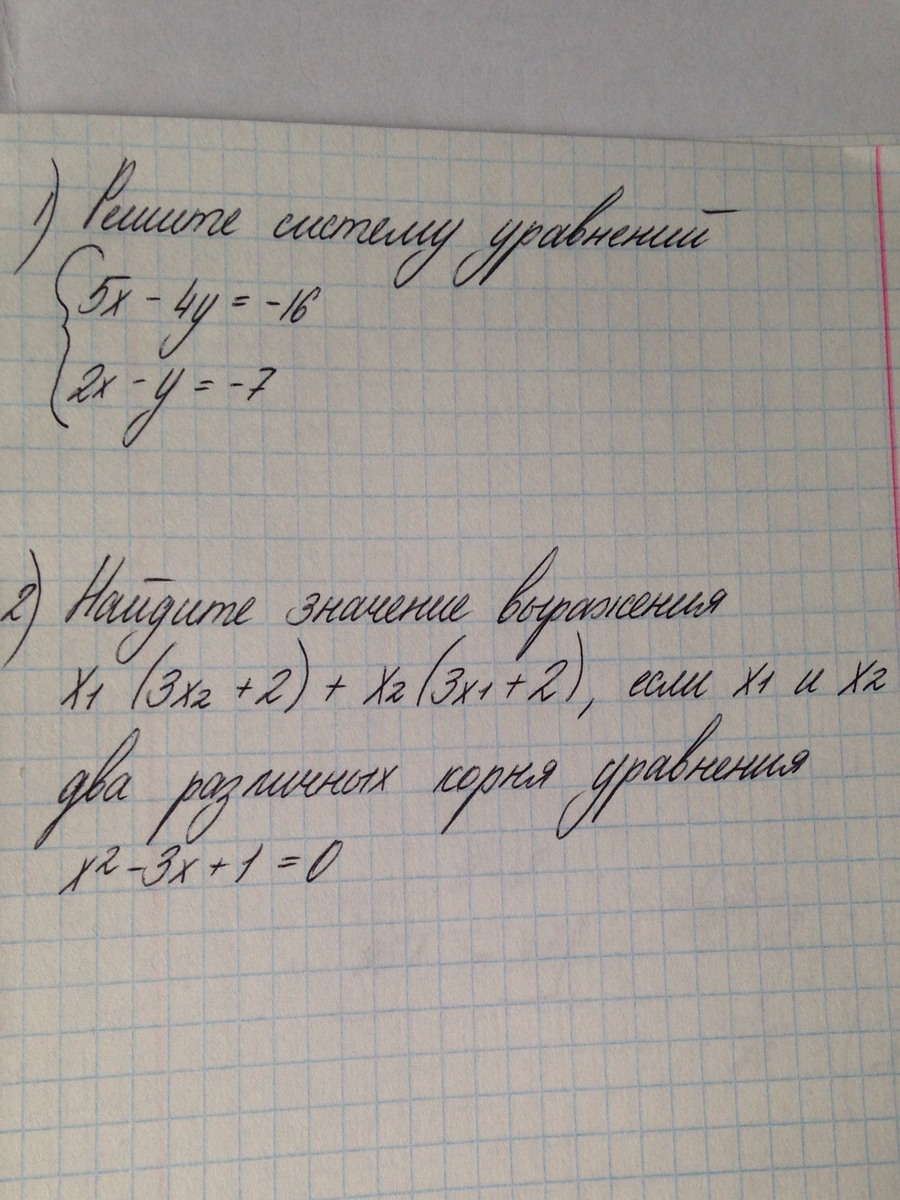 1) Решите систему уравнений
5x - 4y = -16
2x - y = -7
2) Найдите значение выражения
x₁ (3x₂ + 2) + x₂ (3x₁ + 2), если x₁ и x₂
два различных корня уравнения
x² - 3x + 1 = 0